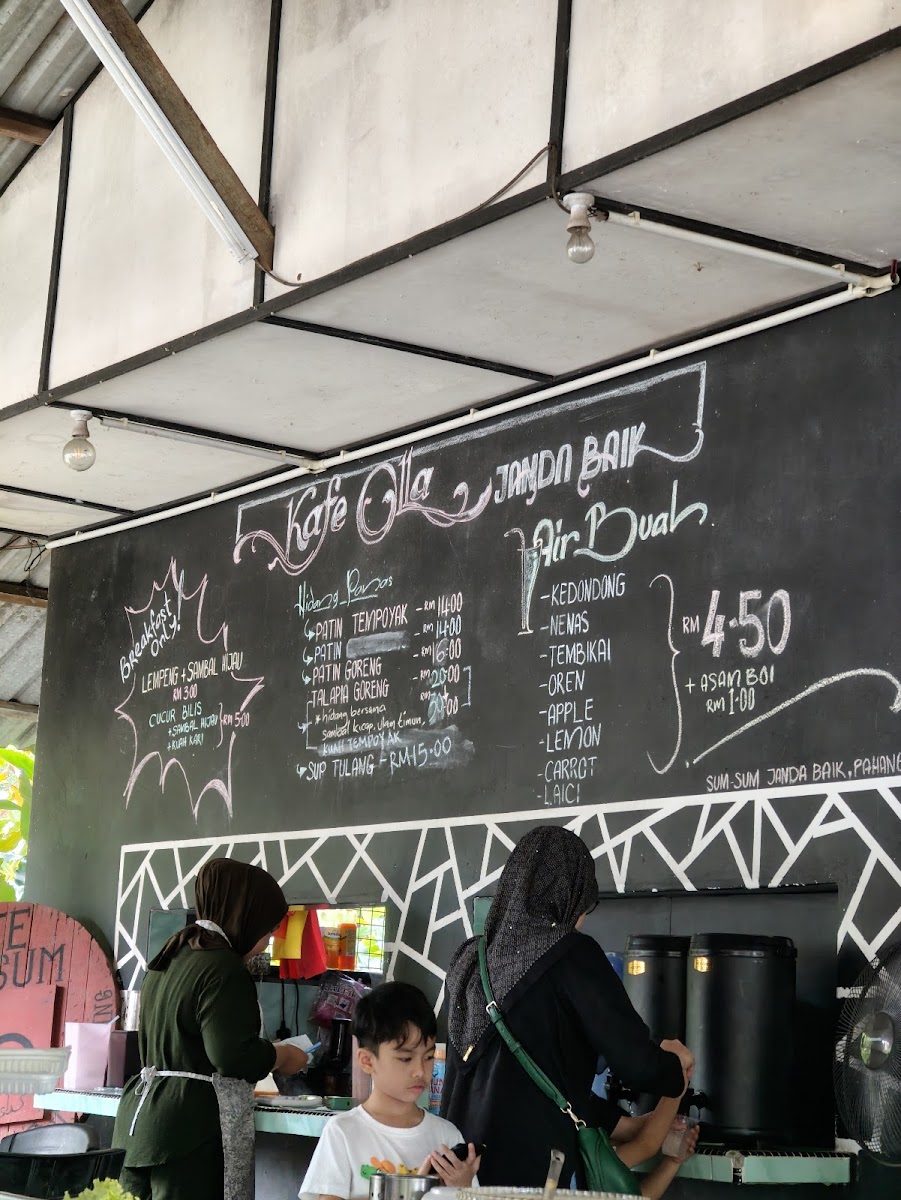 Kafe Olla JANDA BAIK
Breakfast Only!
LEMPENG + SAMBAL HIJAU
RM 3.00
CUCUR BILIS
+ SAMBAL HIJAU
+ KUAH KARI
RM 5.00
Hidang Panas
PATIN TEMPOYAK - RM 14.00
PATIN - RM 14.00
PATIN GORENG - RM 16.00
TALAPIA GORENG - RM 20.00
* hidang bersama
sambal kicap, ulam timun,
KUAH TEMPOYAK
SUP TULANG - RM 15.00
Air Buah
- KEDONDONG
- NENAS
- TEMBIKAI
- OREN
- APPLE
- LEMON
- CARROT
- LAICI
RM 4.50
+ ASAM BOI
RM 1.00
SUM-SUM JANDA BAIK, PAHANG
SUM